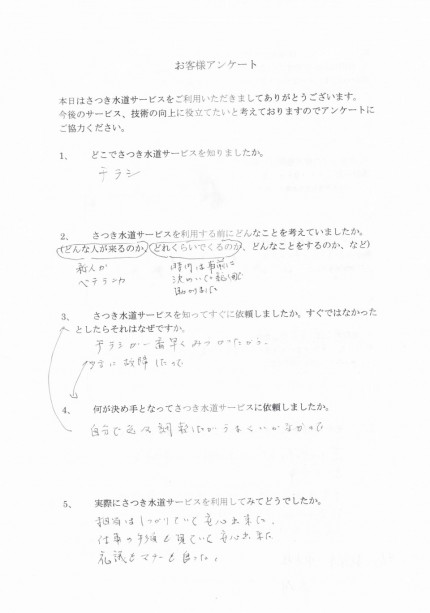 お客様アンケート
本日はさつき水道サービスをご利用いただきましてありがとうございます。
今後のサービス、技術の向上に役立てたいと考えておりますのでアンケートに
ご協力ください。
1、 どこでさつき水道サービスを知りましたか。
チラシ
2、 さつき水道サービスを利用する前にどんなことを考えていましたか。
(どんな人が来るのか、どれくらいでくるのか、どんなことをするのか、など)
新人か
ベテランか
時間は事前に
決めていた
助かりました
3、 さつき水道サービスを知ってすぐに依頼しましたか。すぐではなかった
としたらそれはなぜですか。
チラシが一番早くみつかったから。
に故障した
4、 何が決め手となってさつき水道サービスに依頼しましたか。
自分で 調 がうまくいかなかった
5、 実際にさつき水道サービスを利用してみてどうでしたか。
担当はしっかりしていて安心出来た。
仕事の手順も 安心出来た
礼議もマナーも良かった。